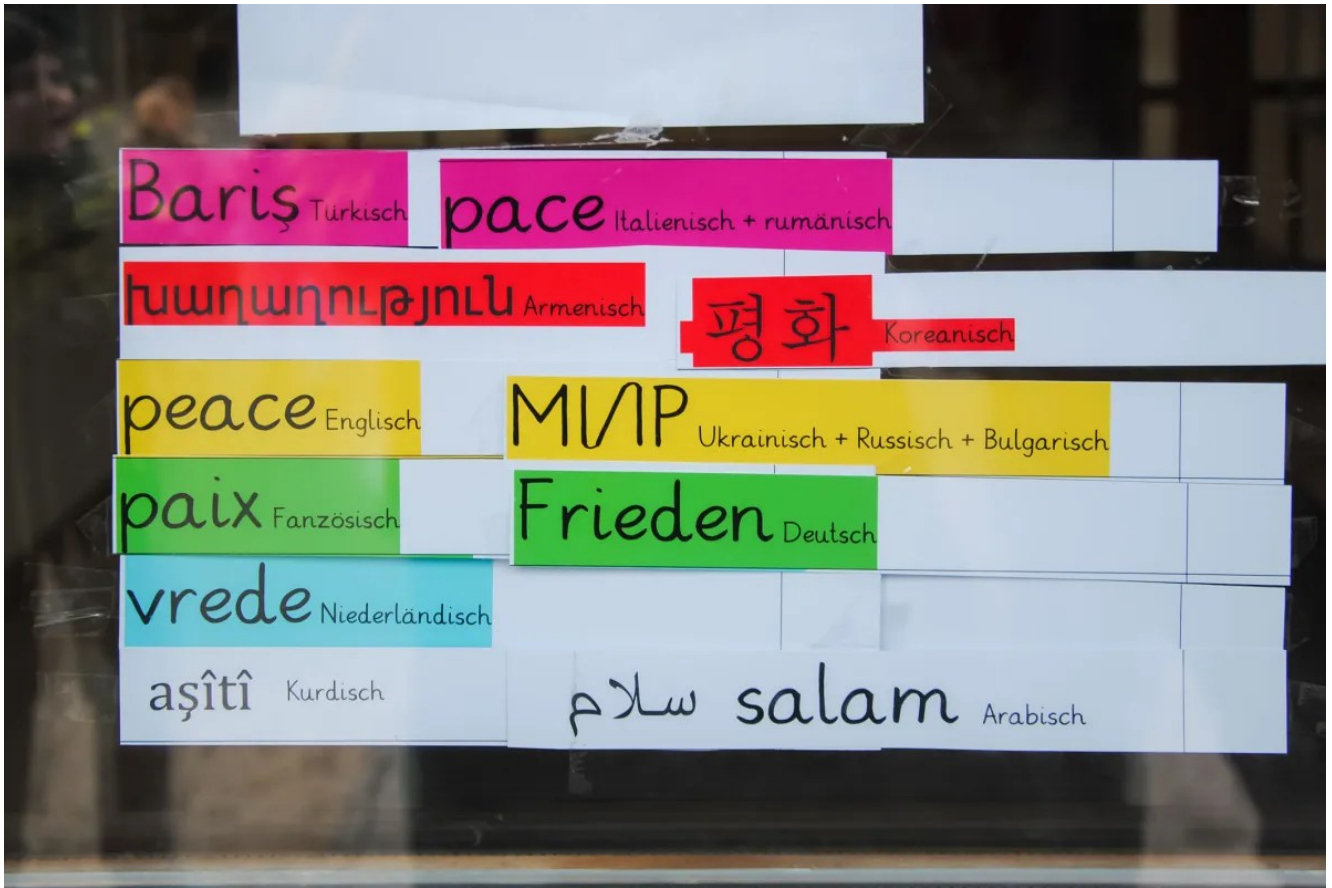 Bariş Türkisch pace Italienisch + rumänisch
խաղաղություն Armenisch 평화 Koreanisch
peace Englisch МИР Ukrainisch + Russisch + Bulgarisch
paix Fanzösisch Frieden Deutsch
vrede Niederländisch
aşîtî Kurdisch سلام salam Arabisch